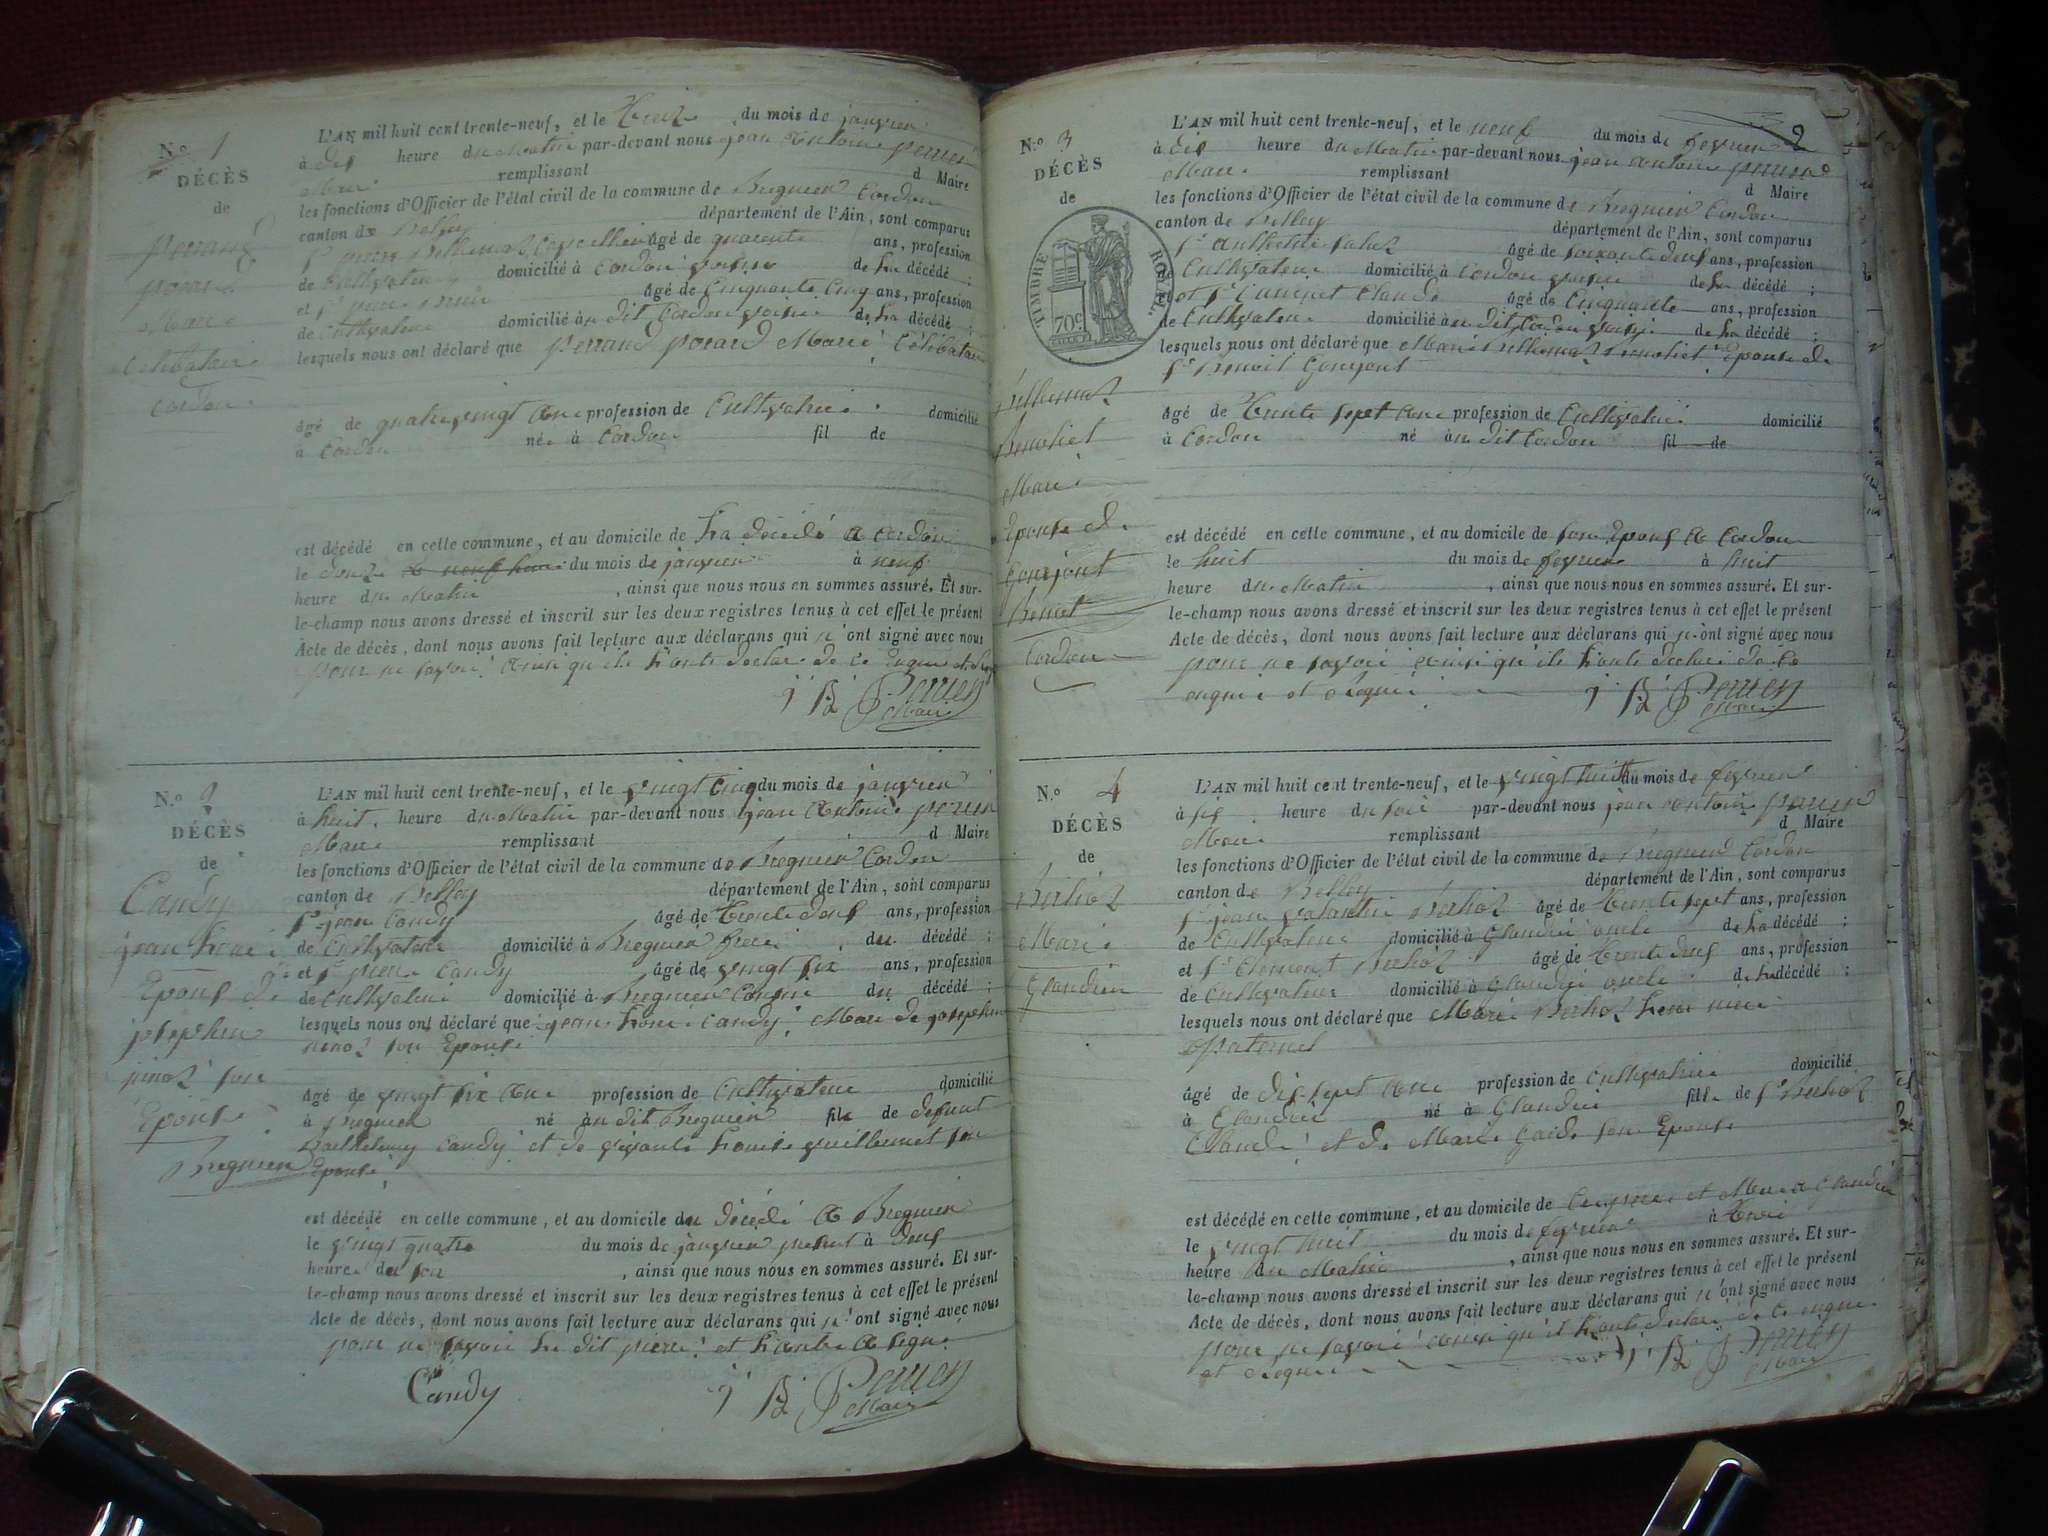 N.o 1
DÉCÈS
de
Cordon
L'AN mil huit cent trente-neuf, et le treize du mois de janvier
à dix heure du Matin par-devant nous jean Antoine perrin
Maire remplissant d Maire
les fonctions d'Officier de l'état civil de la commune de Bregnier Cordon
canton de Belley département de l'Ain, sont comparus
âgé de quarante ans, profession
de Cultivateur domicilié à Cordon voisin de La décédé ;
et âgé de Cinquante Cinq ans, profession
de Cultivateur domicilié au dit Cordon voisin de La décédé ;
lesquels nous ont déclaré que perrand Marie Célibataire
âgé de quatrevingt Ans profession de Cultivatrice domicilié
à Cordon née à Cordon fil de
est décédé en cette commune, et au domicile de La décédé a Cordon
le douze du mois de janvier à neuf
heure du Matin , ainsi que nous nous en sommes assuré. Et sur-
le-champ nous avons dressé et inscrit sur les deux registres tenus à cet effet le présent
Acte de décès, dont nous avons fait lecture aux déclarans qui n'ont signé avec nous
pour ne savoir
Maire
N.o 2
DÉCÈS
de
Candy
Epoux de
josephine
pinoz son
Epouse
Bregnier
L'AN mil huit cent trente-neuf, et le vingt cinq du mois de janvier
à huit heure du Matin par-devant nous jean Antoine perrin
Maire remplissant d Maire
les fonctions d'Officier de l'état civil de la commune de Bregnier Cordon
canton de Belley département de l'Ain, sont comparus
Sr jean Candy âgé de trente deux ans, profession
de Cultivateur domicilié à Bregnier frère du décédé ;
et Sr pierre Candy âgé de vingt six ans, profession
de Cultivateur domicilié à Bregnier Cousin du décédé ;
lesquels nous ont déclaré que Candy, Mari de josephine
pinoz son Epouse
âgé de vingt six Ans profession de Cultivateur domicilié
à Bregnier né au dit Bregnier fils de défunt
Barthelemy Candy et de vivante Louise guillermet son
Epouse
est décédé en cette commune, et au domicile du décédé A Bregnier
le vingt quatre du mois de janvier présent à deux
heure du soir , ainsi que nous nous en sommes assuré. Et sur-
le-champ nous avons dressé et inscrit sur les deux registres tenus à cet effet le présent
Acte de décès, dont nous avons fait lecture aux déclarans qui n'ont signé avec nous
pour ne savoir Le dit pierre et L'autre A signé
Candy
Maire
2
N.o 3
DÉCÈS
de
TIMBRE ROYAL
70c
Marie
Epouse de
Gonjont
Benoit
Cordon
L'AN mil huit cent trente-neuf, et le neuf du mois de fevrier
à dix heure du Matin par-devant nous jean Antoine perrin
Maire remplissant d Maire
les fonctions d'Officier de l'état civil de la commune de Bregnier Cordon
canton de Belley département de l'Ain, sont comparus
âgé de soixante deux ans, profession
de Cultivateur domicilié à Cordon voisin de La décédé ;
et Claude âgé de Cinquante ans, profession
de Cultivateur domicilié au dit Cordon voisin de La décédé ;
lesquels nous ont déclaré que Marie Epouse de
Sr Benoit Gonjont
âgé de trente sept Ans profession de Cultivatrice domicilié
à Cordon né au dit Cordon fil de
est décédé en cette commune, et au domicile de son Epoux A Cordon
le huit du mois de fevrier à huit
heure du Matin , ainsi que nous nous en sommes assuré. Et sur-
le-champ nous avons dressé et inscrit sur les deux registres tenus à cet effet le présent
Acte de décès, dont nous avons fait lecture aux déclarans qui n'ont signé avec nous
pour ne savoir ainsi qu'ils L'ont declaré de ce
enquis et requis
Maire
N.o 4
DÉCÈS
de
Berlioz
Marie
Glandieu
L'AN mil huit cent trente-neuf, et le vingt huit du mois de fevrier
à six heure du soir par-devant nous jean Antoine perrin
Maire remplissant d Maire
les fonctions d'Officier de l'état civil de la commune de Bregnier Cordon
canton de Belley département de l'Ain, sont comparus
Sr jean Berlioz âgé de trente sept ans, profession
de Cultivateur domicilié à Glandieu oncle de La décédé ;
et Sr Clement Berlioz âgé de trente deux ans, profession
de Cultivateur domicilié à Glandieu oncle de La décédé ;
lesquels nous ont déclaré que Marie Berlioz Leur niece
paternel
âgé de dix sept Ans profession de Cultivatrice domicilié
à Glandieu né à Glandieu fille de Sr Berlioz
Claude et de Marie son Epouse
est décédé en cette commune, et au domicile de Ces pere et Mere A Glandieu
le vingt huit du mois de fevrier à trois
heure du Matin , ainsi que nous nous en sommes assuré. Et sur-
le-champ nous avons dressé et inscrit sur les deux registres tenus à cet effet le présent
Acte de décès, dont nous avons fait lecture aux déclarans qui n'ont signé avec nous
pour ne savoir ainsi qu'il L'ont declaré de ce enquis
et requis
Maire